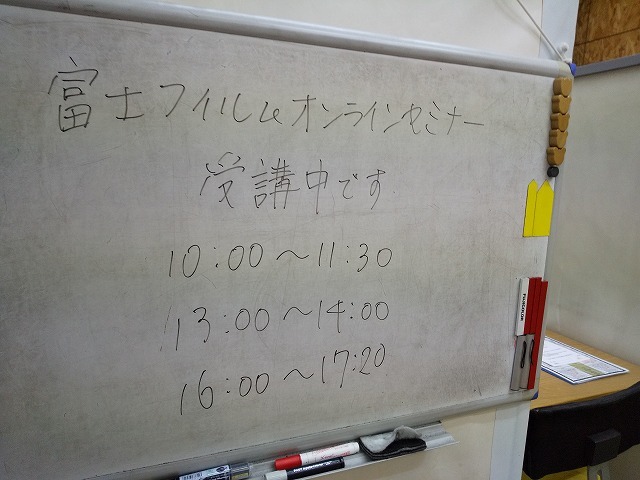 富士フィルムオンラインセミナー
受講中です
10:00〜11:30
13:00〜14:00
16:00〜17:20